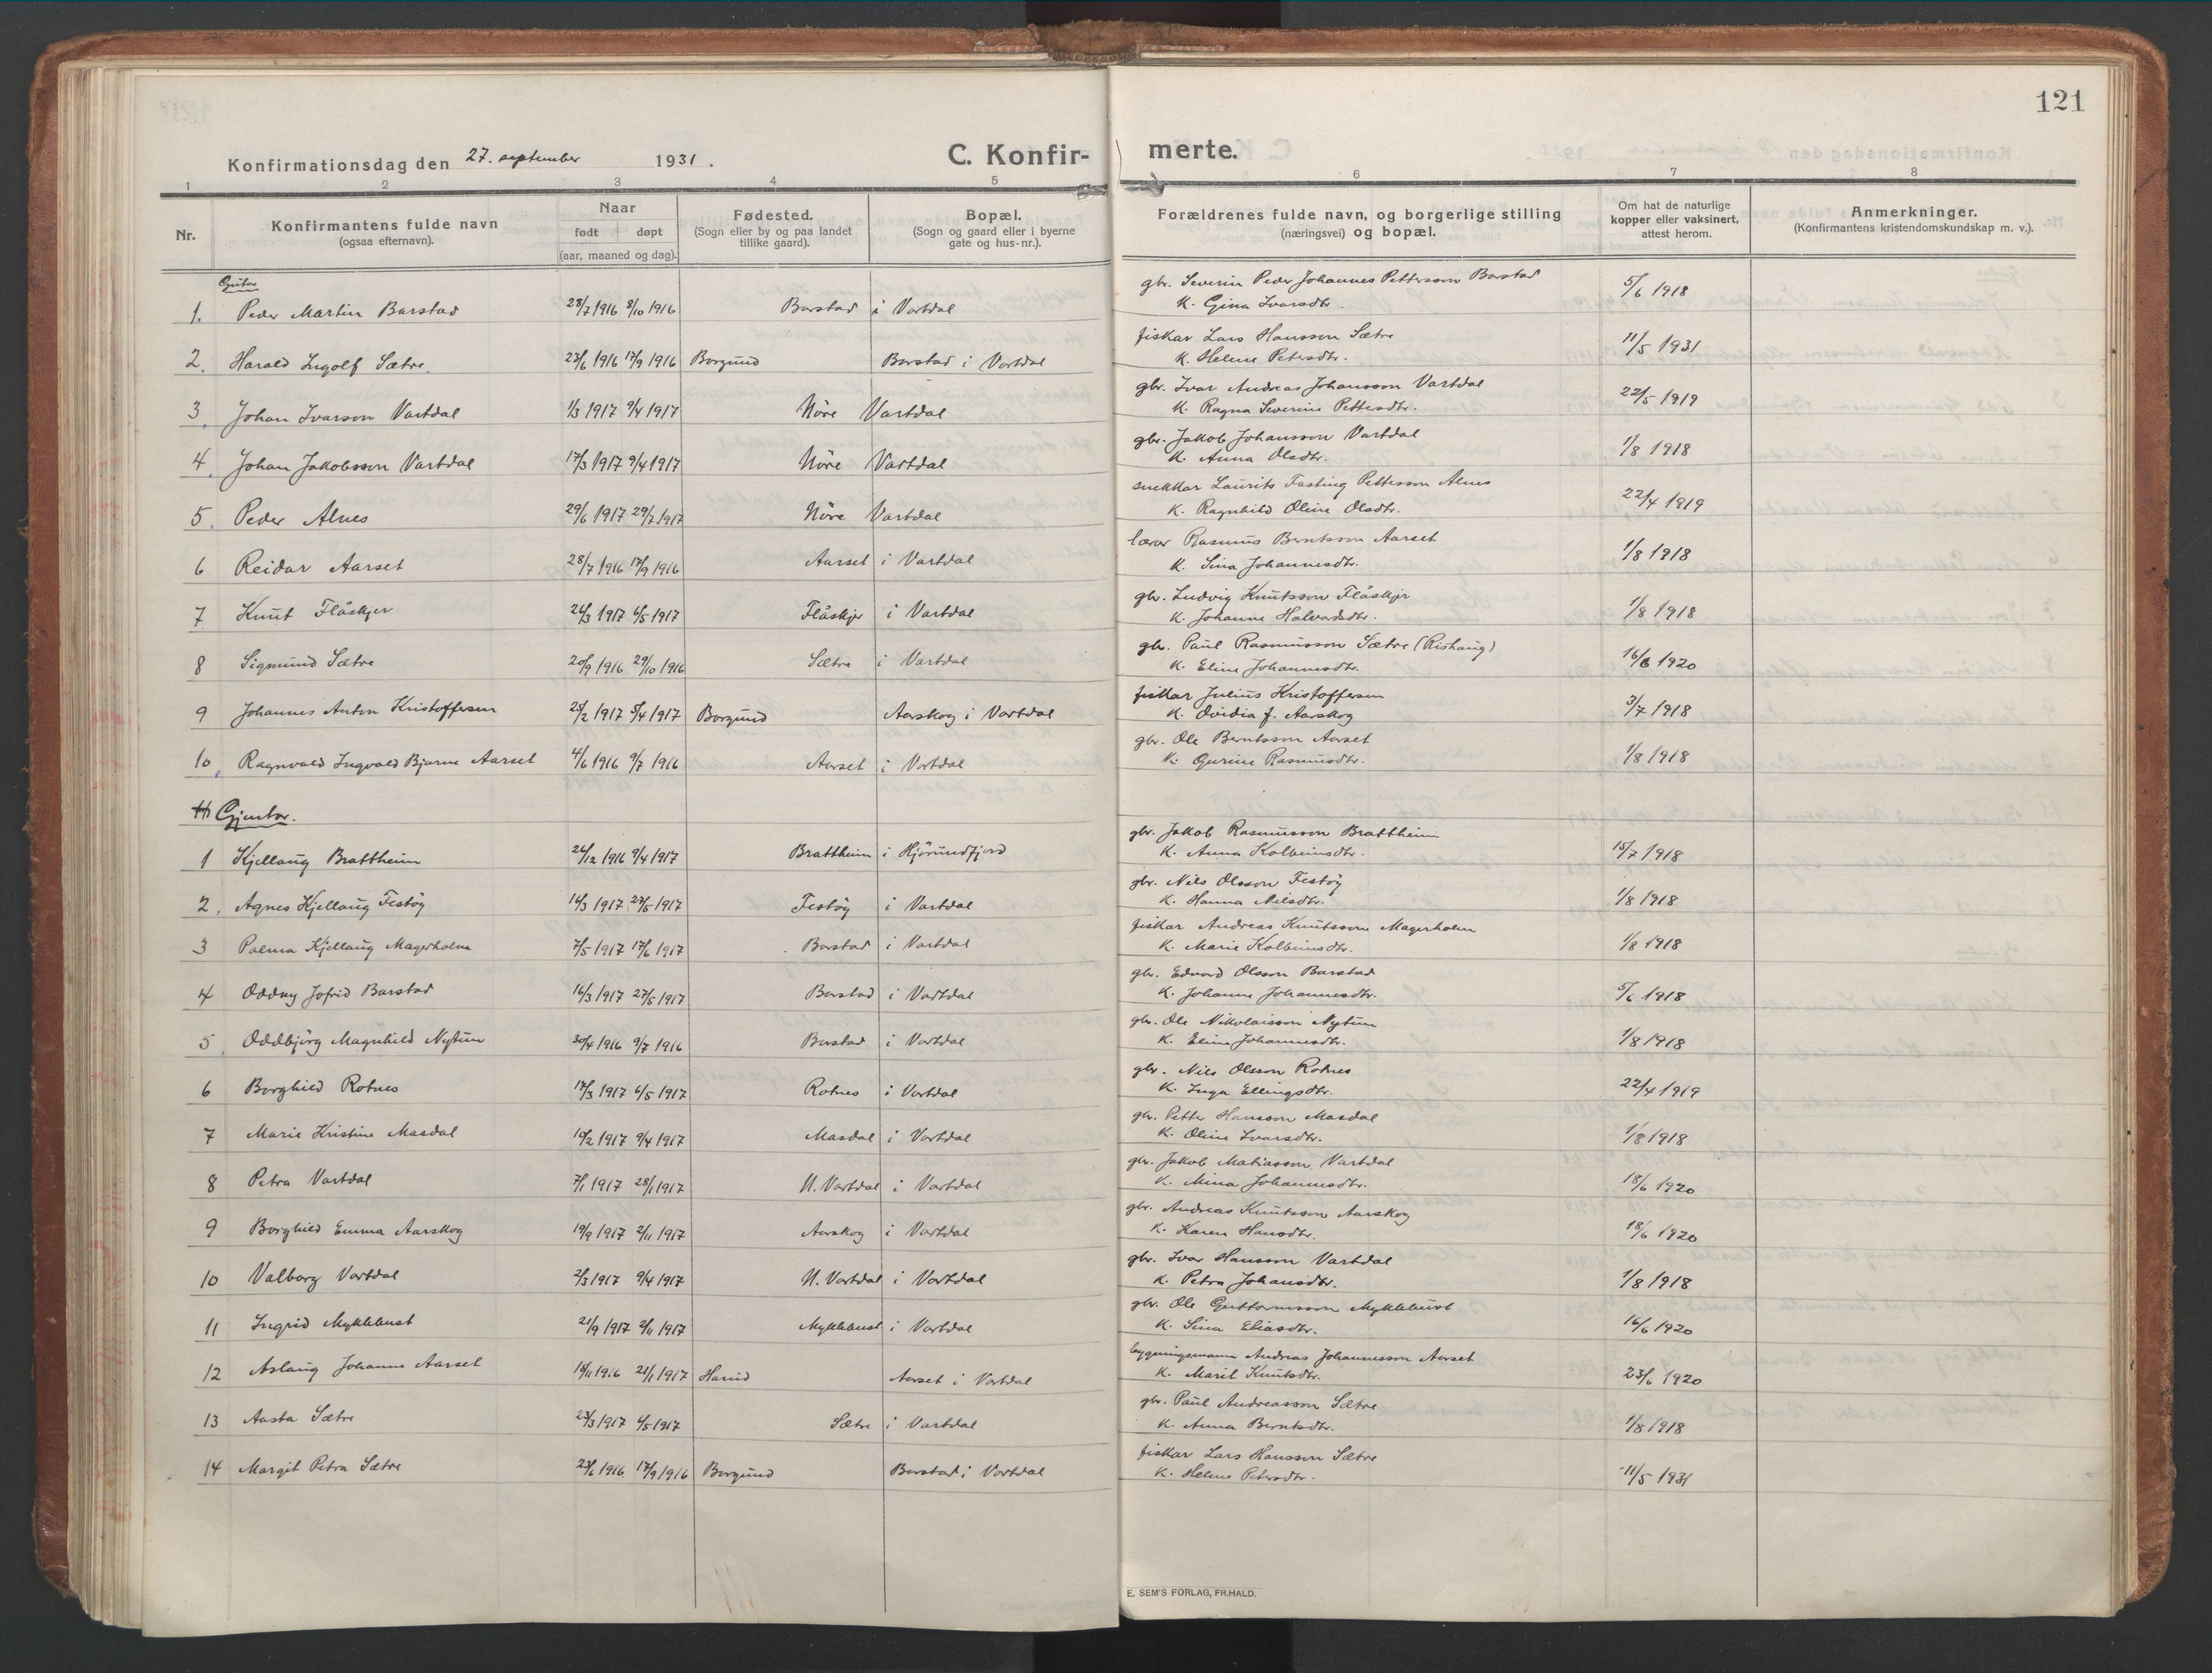 121
Konfirmationsdag den 27. september 1931.
C. Konfir- merte.
1 2 3 4 5 6 7 8
Nr.
Konfirmantens fulde navn
(ogsaa efternavn).
Naar
født døpt
(aar, maaned og dag).
Fødested.
(Sogn eller by og paa landet
tillike gaard).
Bopæl.
(Sogn og gaard eller i byerne
gate og hus-nr.).
Forældrenes fulde navn, og borgerlige stilling
(næringsvei) og bopæl.
Om hat de naturlige
kopper eller vaksinert,
attest herom.
Anmerkninger.
(Konfirmantens kristendomskundskap m. v.).
Gutar
gbr. Severin Peder Johannes Pettersson Barstad
1. Peder Martin Barstad 28/7 1916 8/10 1916 Barstad i Vartdal K. Gina Ivarsdtr. 5/6 1918
fiskar Lars Hansson Sætre
2. Harald Ingolf Sætre 23/6 1916 17/9 1916 Borgund Barstad i Vartdal K. Helene Petersdtr. 11/5 1931
gbr. Ivar Andreas Johansson Vartdal
3. Johan Ivarson Vartdal 1/3 1917 9/4 1917 Nöre Vartdal K. Ragna Severine Pettersdtr. 22/5 1919
gbr. Jakob Johansson Vartdal
4. Johan Jakobsson Vartdal 17/3 1917 9/4 1917 Nöre Vartdal K. Anna Olsdtr. 1/8 1918
snekkar Laurits Fasting Pettersson Alnes
5. Peder Alnes 29/6 1917 29/7 1917 Nöre Vartdal K. Ragnhild Oline Olsdtr. 22/4 1919
lærar Rasmus Berntsson Aarset
6 Reidar Aarset 28/7 1916 17/9 1916 Aarset i Vartdal K. Sina Johannesdtr. 1/8 1918
gbr. Ludvig Knutsson Flåskjer
7 Knut Flåskjer 26/3 1917 6/5 1917 Flåskjer i Vartdal K. Johanne Halvardsdtr. 1/8 1918
gbr. Paul Rasmusson Sætre (Rishaug)
8 Sigmund Sætre 20/9 1916 29/10 1916 Sætre i Vartdal K. Eline Johannesdtr. 16/6 1920
fiskar Julius Kristoffersen
9 Johannes Anton Kristoffersen 25/2 1917 5/4 1917 Borgund Aarskog i Vartdal K. Ovidia f. Aarskog 3/7 1918
gbr. Ole Berntsson Aarset
10. Ragnvald Ingvald Bjarne Aarset 4/6 1916 9/7 1916 Aarset i Vartdal K. Gurine Rasmusdtr. 1/8 1918
11 Gjentor.
gbr. Jakob Rasmusson Brattheim
1 Kjellaug Brattheim 26/12 1916 9/4 1917 Brattheim i Hjörundfjord K. Anna Kolbeinsdtr. 15/7 1918
gbr. Nils Olsson Festöy
2. Agnes Kjellaug Festöy 16/3 1917 27/5 1917 Festöy i Vartdal K. Hanna Nilsdtr. 1/8 1918
fiskar Andreas Knutsson Magerholm
3 Palma Kjellaug Magerholm 7/5 1917 17/6 1917 Barstad i Vartdal K. Marie Kolbeinsdtr. 1/8 1918
gbr. Edvard Olsson Barstad
4 Oddny Jofrid Barstad 16/3 1917 27/5 1917 Barstad i Vartdal K. Johanne Johannesdtr. 5/6 1918
gbr. Ole Nikolaisson Nytun
5. Oddbjörg Magnhild Nytun 30/4 1916 9/7 1916 Barstad i Vartdal K. Eline Johannesdtr. 1/8 1918
gbr. Nils Olsson Rotnes
6 Borghild Rotnes 17/3 1917 6/5 1917 Rotnes i Vartdal K. Inga Ellingsdtr. 22/4 1919
gbr. Petter Hansson Masdal
7 Marie Kristine Masdal 10/2 1917 9/4 1917 Masdal i Vartdal K. Oline Ivarsdtr. 1/8 1918
gbr. Jakob Matiasson Vartdal
8 Petra Vartdal 7/1 1917 28/1 1917 N. Vartdal i Vartdal K. Mina Johannesdtr. 18/6 1920
gbr. Andreas Knutsson Aarskog
9 Borghild Emma Aarskog 19/9 1917 2/11 1917 Aarskog i Vartdal K. Karen Hansdtr. 18/6 1920
gbr. Ivar Hansson Vartdal
10 Valborg Vartdal 2/3 1917 9/4 1917 N. Vartdal i Vartdal K. Petra Johansdtr. 1/8 1918
gbr. Ole Guttormsson Myklebust
11 Ingrid Myklebust 21/9 1917 2/11 1917 Myklebust i Vartdal K. Sina Eliasdtr. 16/6 1920
bygningsmann Andreas Johannesson Aarset
12 Aslaug Johanne Aarset 18/11 1916 21/1 1917 Hareid Aarset i Vartdal K. Marit Knutsdtr. 23/6 1920
gbr. Paul Andreasson Sætre
13 Aasta Sætre 23/3 1917 6/5 1917 Sætre i Vartdal K. Anna Berntsdtr. 1/8 1918
fiskar Lars Hansson Sætre
14 Margit Petra Sætre 23/6 1916 17/9 1916 Borgund Barstad i Vartdal K. Helene Petersdtr. 11/5 1931
E. SEM'S FORLAG, FR.HALD.